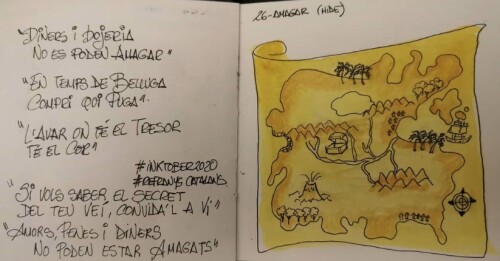 "DINERS I BOJERIA
NO ES PODEN AMAGAR"
"EN TEMPS DE BELLUGA
COMPRI QUI PUGA".
"L'AVAR ON TÉ EL TRESOR
TÉ EL COR"
#INKTOBER2020
#REFRANYS CATALANS
"SI VOLS SABER EL SECRET
DEL TEU VEÍ, CONVIDA'L A VI"
"AMORS, PENES I DINERS
NO PODEN ESTAR AMAGATS"
26-AMAGAR (HIDE)